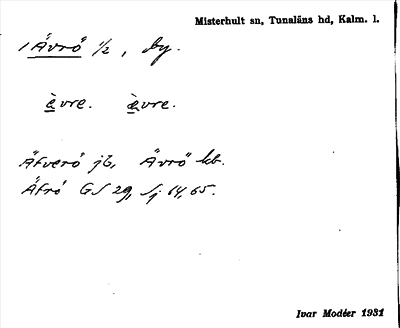 Misterhult sn, Tunaläns hd, Kalm. l.
1 Ävrö 1/2, by.
ä̀vre. ä̀vre.
Äfverö jb, Ävrö kb.
Äfrö GS 29, Sj 64, 65.
Ivar Modéer 1931